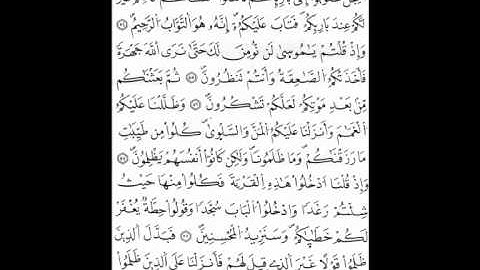 لَّكُمْ عِندَ بَارِئِكُمْ فَتَابَ عَلَيْكُمْ إِنَّهُۥ هُوَ التَّوَّابُ الرَّحِيمُ
وَإِذْ قُلْتُمْ يَٰمُوسَىٰ لَن نُّومِنَ لَكَ حَتَّىٰ نَرَى اللَّهَ جَهْرَةً
فَأَخَذَتْكُمُ الصَّٰعِقَةُ وَأَنتُمْ تَنظُرُونَ ثُمَّ بَعَثْنَٰكُم
مِّنۢ بَعْدِ مَوْتِكُمْ لَعَلَّكُمْ تَشْكُرُونَ وَظَلَّلْنَا عَلَيْكُمُ
الْغَمَٰمَ وَأَنزَلْنَا عَلَيْكُمُ الْمَنَّ وَالسَّلْوَىٰ كُلُواْ مِن طَيِّبَٰتِ
مَا رَزَقْنَٰكُمْ وَمَا ظَلَمُونَا وَلَٰكِن كَانُواْ أَنفُسَهُمْ يَظْلِمُونَ
وَإِذْ قُلْنَا ادْخُلُواْ هَٰذِهِ الْقَرْيَةَ فَكُلُواْ مِنْهَا حَيْثُ
شِئْتُمْ رَغَدًا وَادْخُلُواْ الْبَابَ سُجَّدًا وَقُولُواْ حِطَّةٌ يُغْفَرْ
لَكُمْ خَطَٰيَٰكُمْ وَسَنَزِيدُ الْمُحْسِنِينَ فَبَدَّلَ الَّذِينَ
ظَلَمُواْ قَوْلًا غَيْرَ الَّذِي قِيلَ لَهُمْ فَأَنزَلْنَا عَلَى الَّذِينَ ظَلَمُواْ